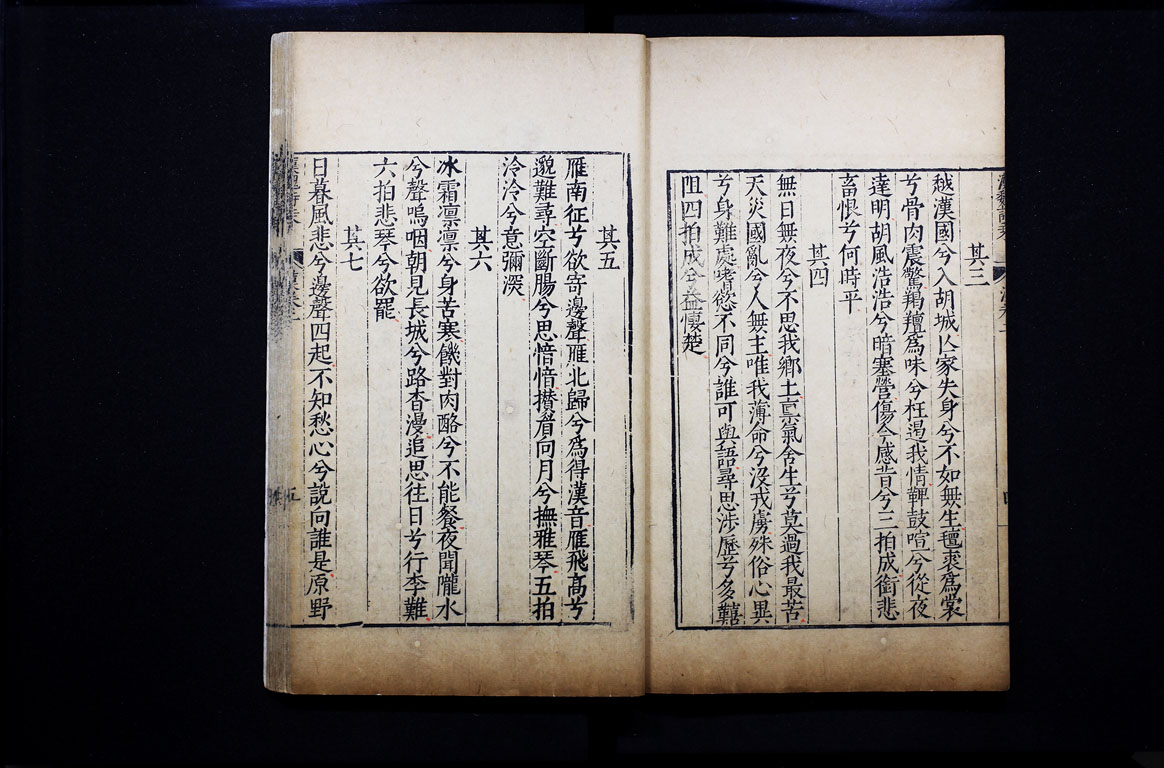 其三
越漢國兮入胡城亾家失身兮不如無生氊裘爲裳
兮骨肉震驚羯羶爲味兮枉遏我情鞞鼓喧兮從夜
達明胡風浩浩兮暗塞營傷今感昔兮三拍成銜悲
畜恨兮何時平
其四
無日無夜兮不思我鄉土禀氣含生兮莫過我最苦
天災國亂兮人無主唯我薄命兮没戎虜殊俗心異
兮身難處嗜慾不同兮誰可與語尋思涉歷兮多囏
阻四拍成兮益悽楚
其五
雁南征兮欲寄邊聲雁北歸兮爲得漢音雁飛高兮
邈難尋空斷腸兮思愔愔攅眉向月兮撫雅琴五拍
泠泠兮意彌深
其六
冰霜凛凛兮身苦寒饑對肉酪兮不能餐夜聞隴水
兮聲嗚咽朝見長城兮路杳漫追思往日兮行李難
六拍悲琴兮欲罷
其七
日暮風悲兮邊聲四起不知愁心兮說向誰是原野
五